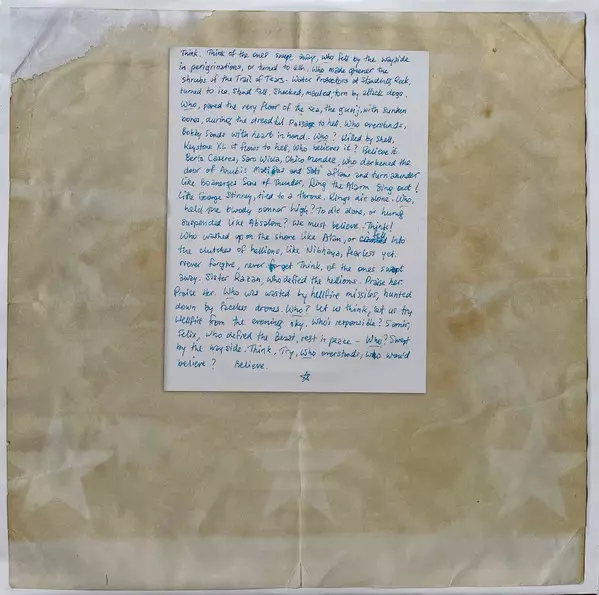 Think. Think of the ones swept away, who fell by the wayside
in perigrinations, or turned to ash. Who made greener the
shrubs of the Trail of Tears. Water Protectors at Standing Rock,
turned to ice. Stand tall. Shocked, mauled torn by attack dogs.
Who, paved the very floor of the sea, the with sunken
bones, during the dreadful Passage to hell. Who overstands,
Bobby Sands with heart in hand.. Who? Killed by Shell,
Keystone XL it flows to hell, Who believes it? Believe it.
Berta Caceres, Saro Wiwa, Chico Mendez, who darkened the
door of and aflow and turn asunder
like Boanerges Sons of Thunder, Ring the Alarm Sing out!
Like George Stinney, tied to a throne. Kings die alone. Who,
held the bloody banner high? To die alone, or hung
suspended like Absalom? We must believe. Think!
Who washed up on the shore like Alan, or fell into
the clutches of hellions, like Nibhaya, fearless yet.
Never forgive, never forget Think, of the ones swept
away. Sister Razan, who defied the hellions. Praise her.
Praise Her. Who was wasted by hellfire missiles, hunted
down by faceless drones. Who? Let us think, let us try
Hellfire from the evening sky. Who's responsible? Samir,
Felix, who defied the Beast, rest in peace – Who? Swept
by the wayside. Think, Try, Who overstands, who would
believe? Believe.